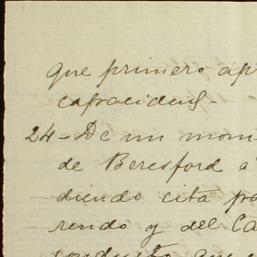 que primero ap
capacidad.
24 - De un mom
de Beresford a
diendo cita pa
rendo y del Ca
conducto que